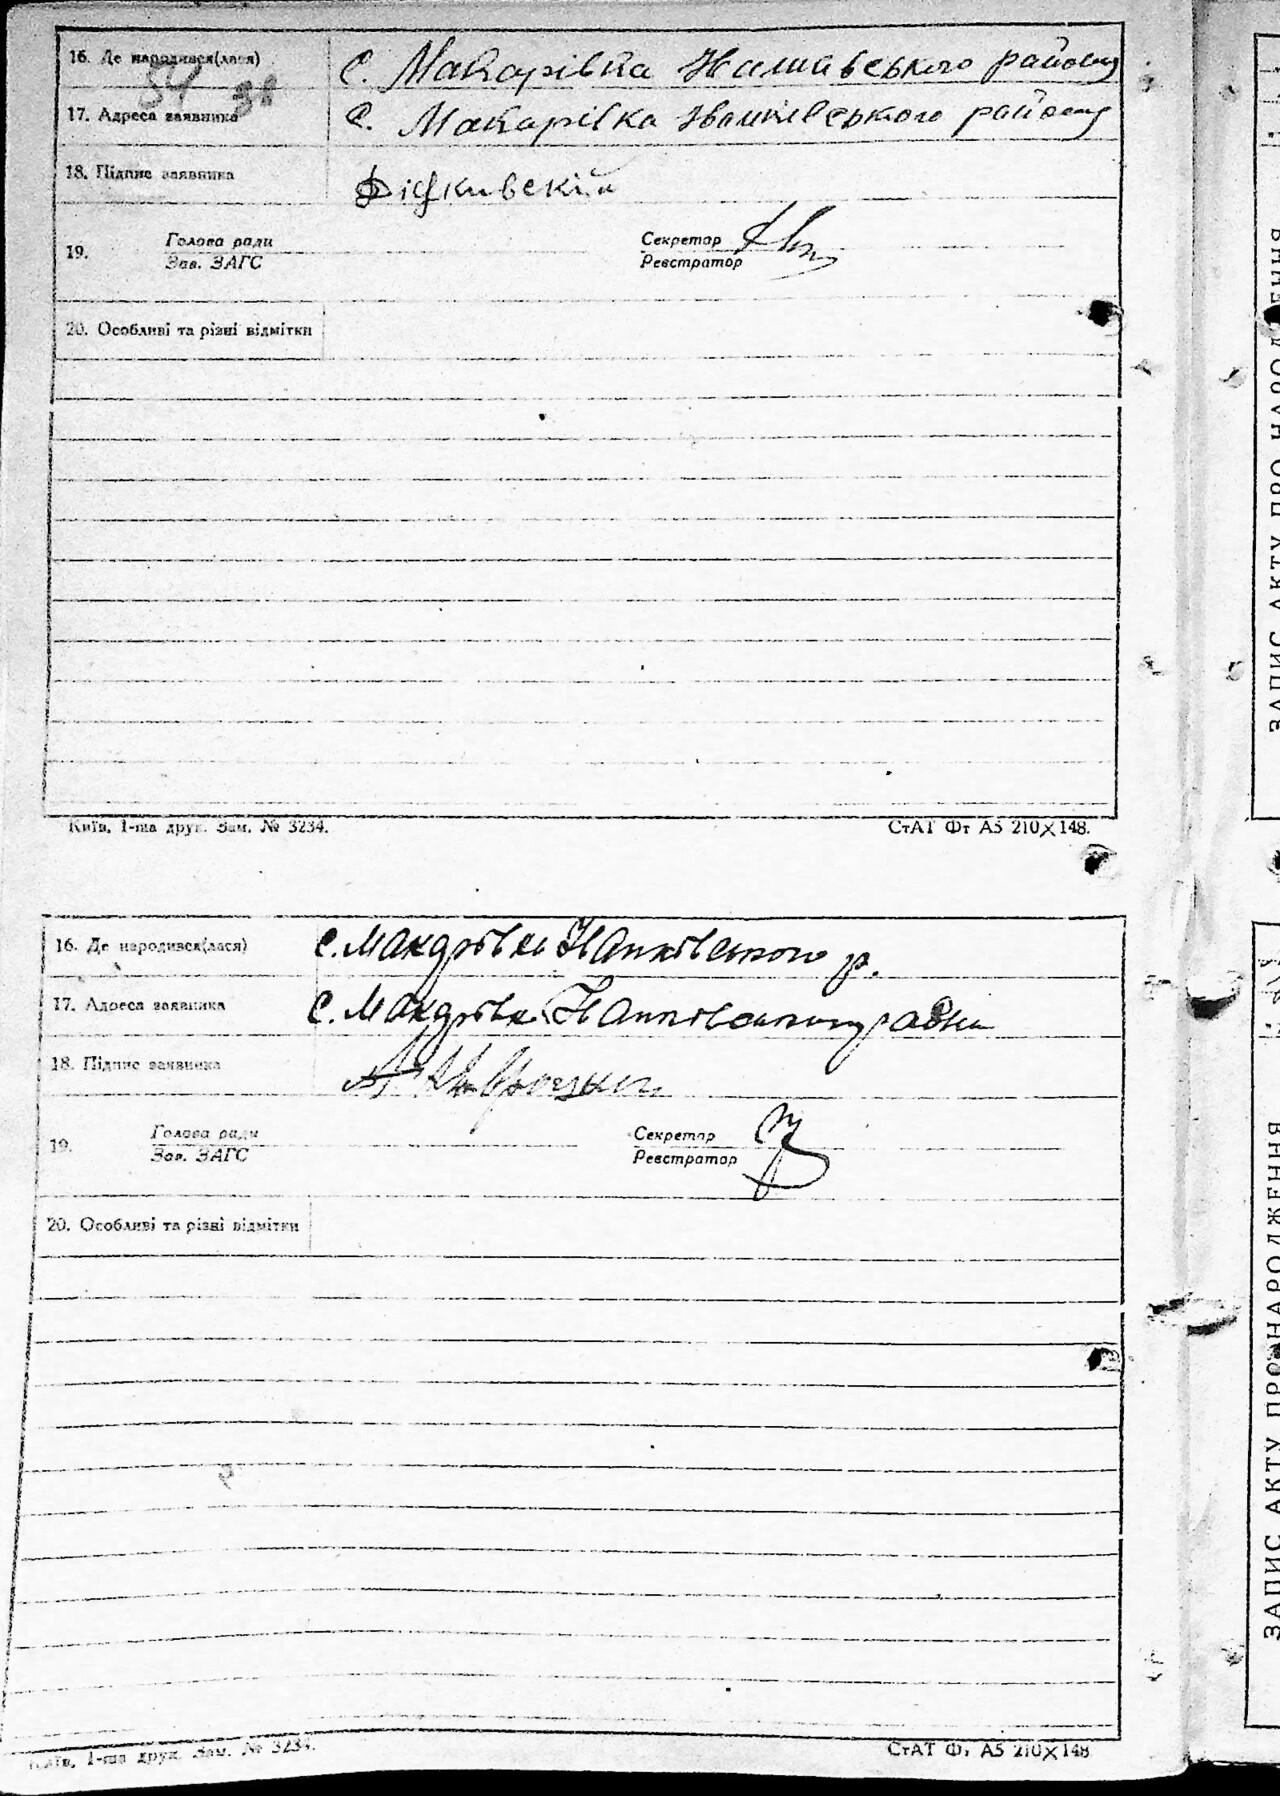 16. Де народився(лася) с. Макарівка Іванківського району
54 38
17. Адреса заявника с. Макарівка Іванківського району
18. Підпис заявника
19. Голова ради Секретар
Зав. ЗАГС Реєстратор
20. Особливі та різні відмітки
Київ, 1-ша друк. Зам. № 3234. СтАТ Фт А5 210×148.
16. Де народився(лася) с. Макарівка Іванківського р.
17. Адреса заявника с. Макарівка
18. Підпис заявника
19. Голова ради Секретар
Зав. ЗАГС Реєстратор
20. Особливі та різні відмітки
Київ, 1-ша друк. Зам. № 3234. СтАТ Фт А5 210×148
ЗАПИС АКТУ ПРО НАРОДЖЕННЯ
ЗАПИС АКТУ ПРО НАРОДЖЕННЯ